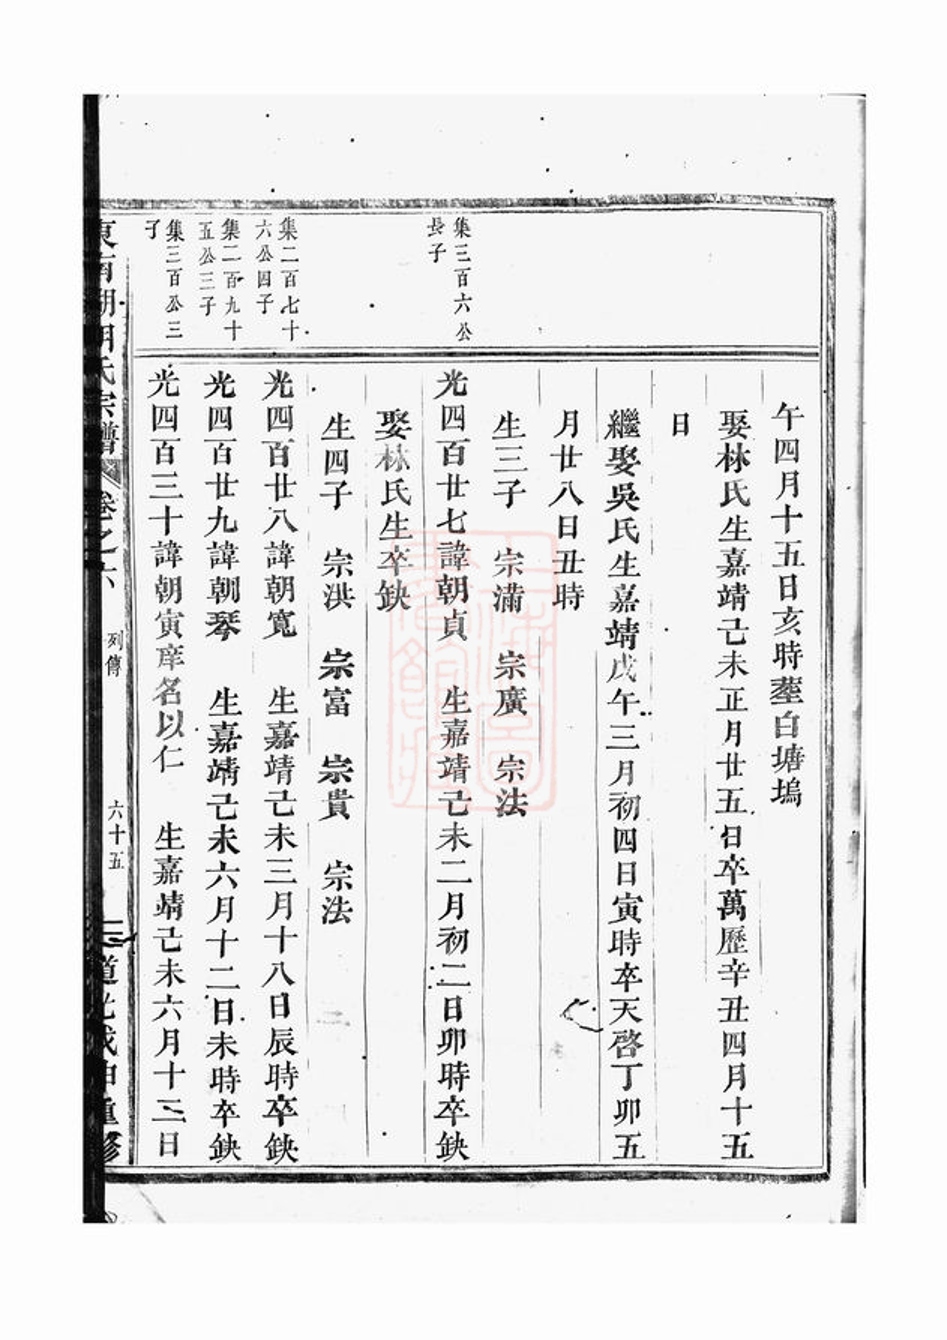 午四月十五日亥時塟白塘塢
娶林氏生嘉靖己未正月廿五日卒萬歷辛丑四月十五
日
繼娶吳氏生嘉靖戊午三月初四日寅時卒天啓丁卯五
月廿八日丑時
生三子 宗滿 宗廣 宗法
集三百六公
長子
光四百廿七諱朝貞 生嘉靖己未二月初二日卯時卒缺
娶林氏生卒缺
生四子 宗洪 宗富 宗貴 宗法
集二百七十
六公四子
光四百廿八諱朝寬 生嘉靖己未三月十八日辰時卒缺
集二百九十
五公三子
光四百廿九諱朝琴 生嘉靖己未六月十二日未時卒缺
集三百公三
子
光四百三十諱朝寅庠名以仁 生嘉靖己未六月十三日
東南湖胡氏宗譜 卷之六 列傳 六十五 道光戊申重修